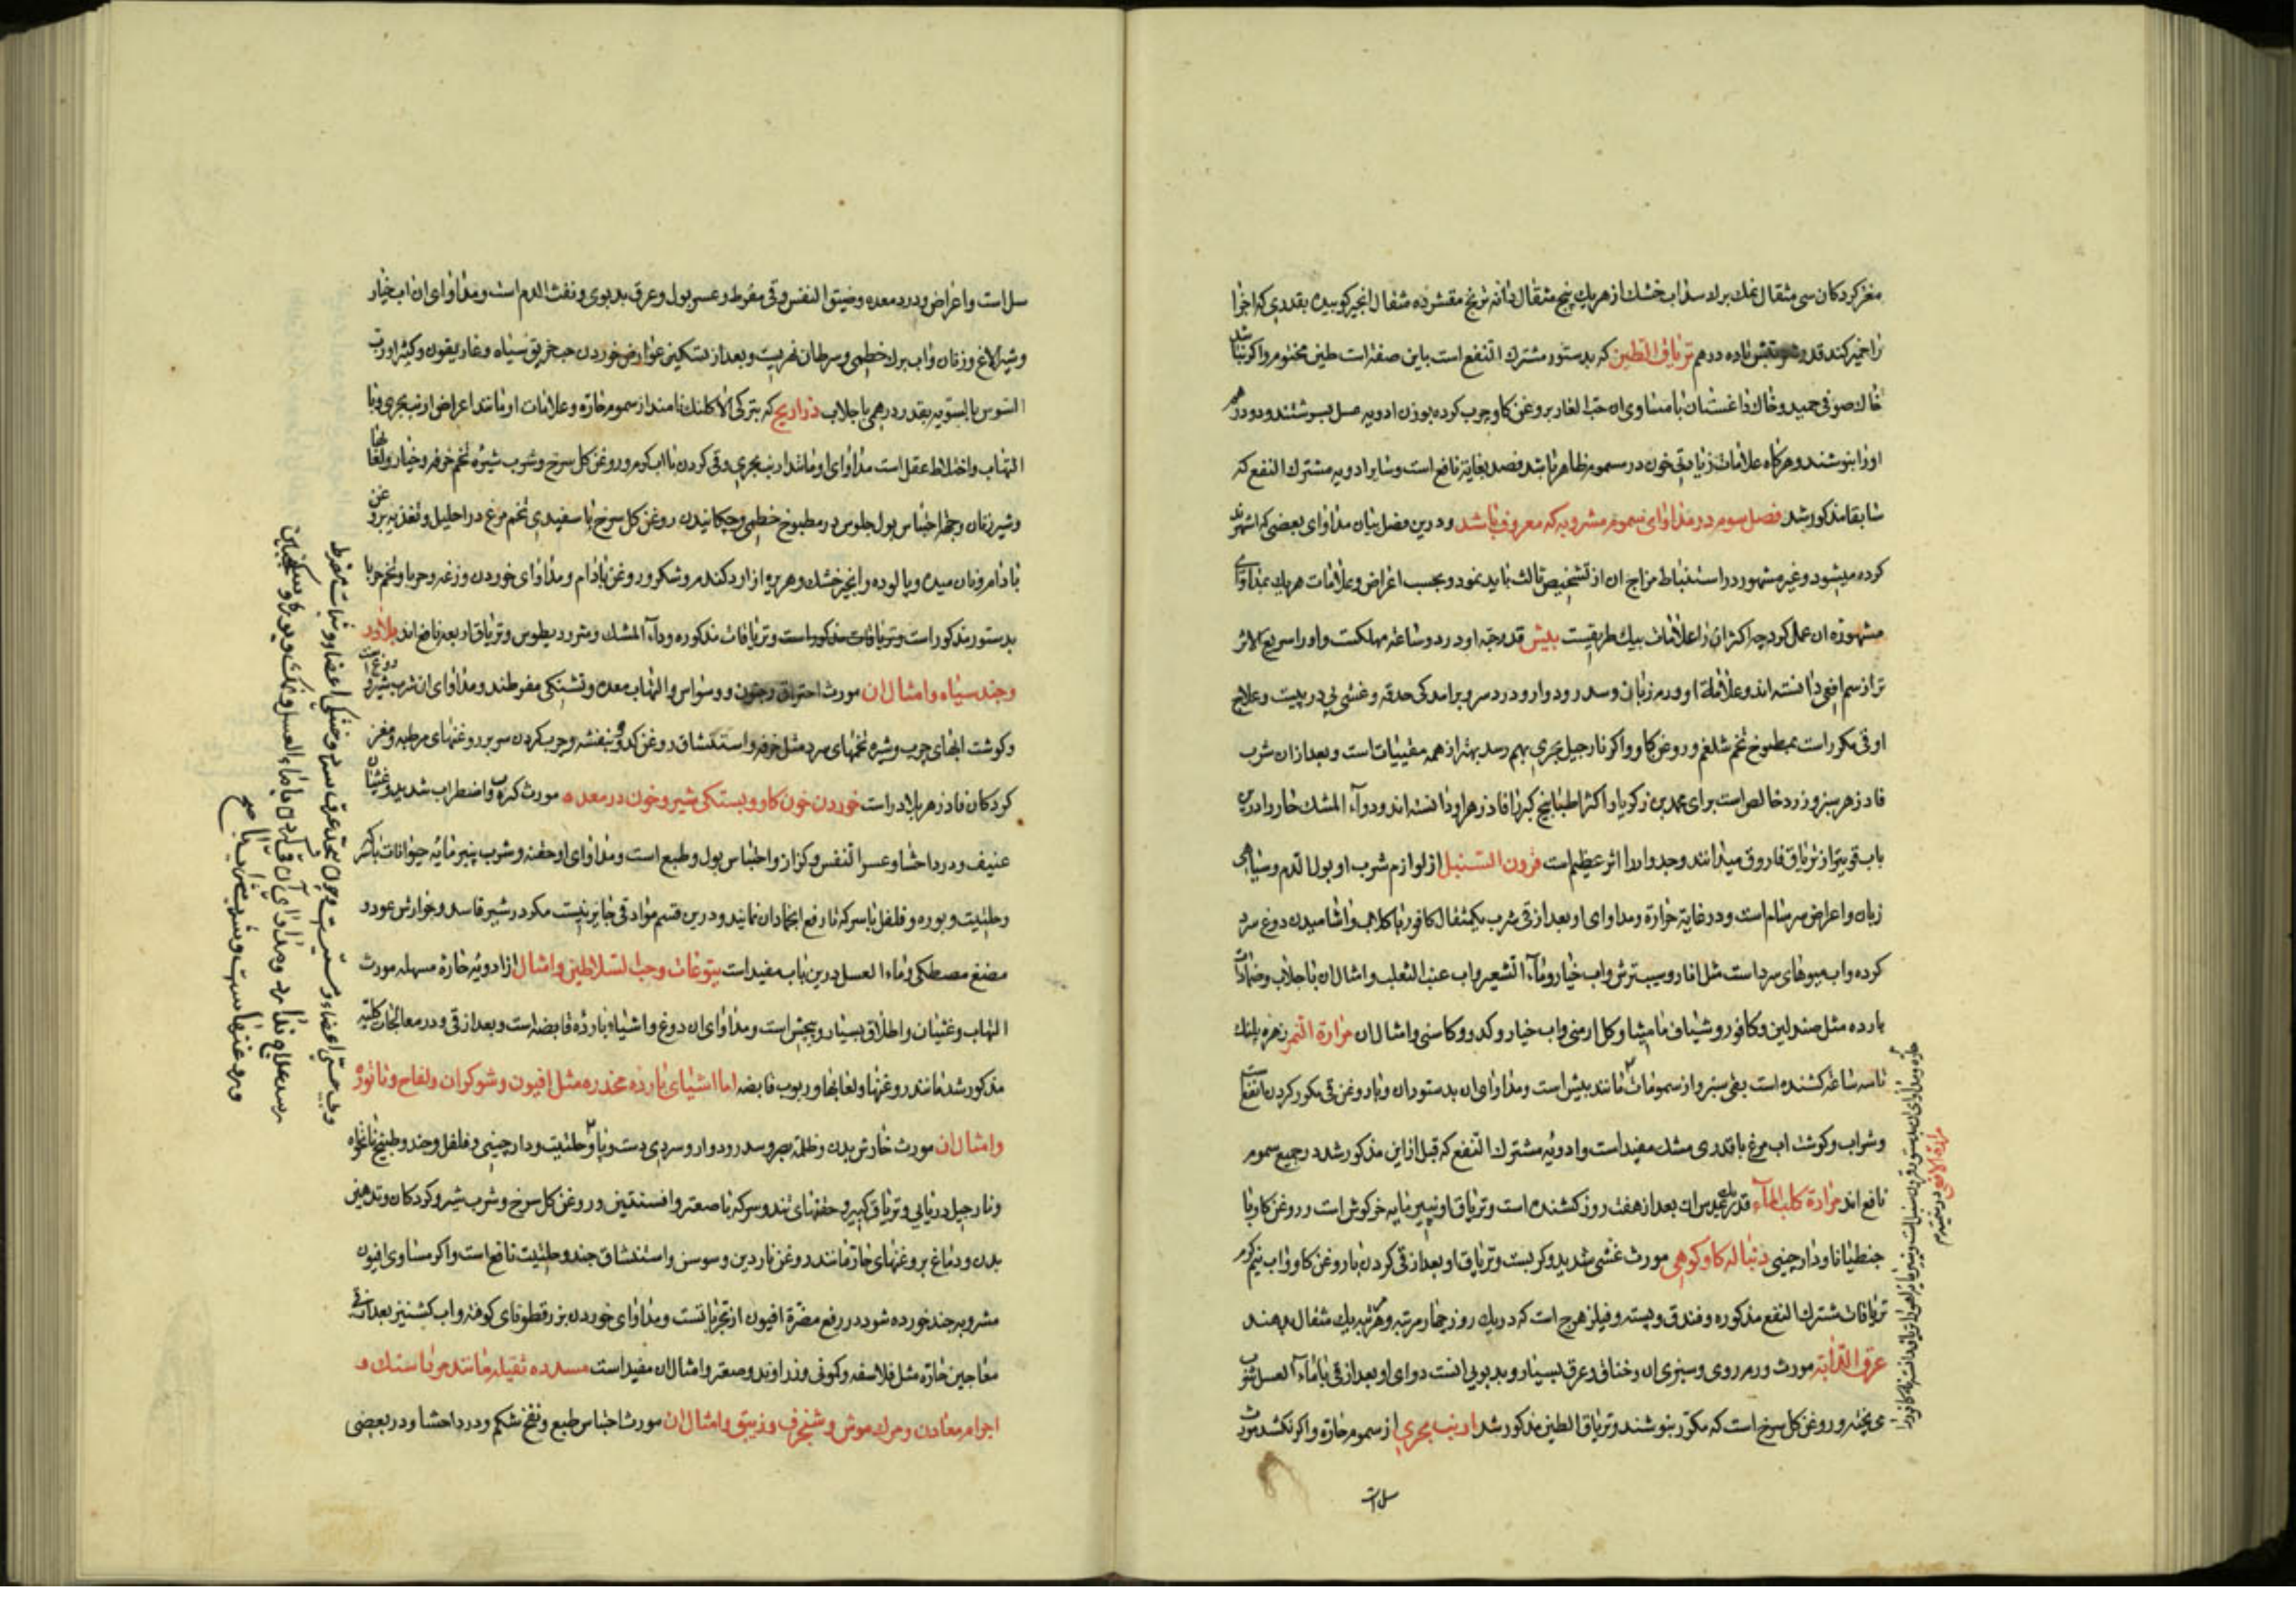 مغز کردکان سی مثقال نمك برك سداب خشك از هریك پنج مثقال دانه ترنج مقشر ده مثقال انجیر کوبیده بقدری که اجزا
را خمیر کند قدر تریاق الطین که بدستور مشترك النفع است باین صفة است طین مختوم و اکر نباشد
خاك صوفی حمید و خاك داغستان با مساوی ان حب الغار بروغن کاو چرب کرده بوزن ادویه عسل بسرشند و دو درهم
اورا بنوشند و هرکاه علامات زیادتی خون در سموم ظاهر باشد فصد بغایة نافع است و سایر ادویه مشترك النفع که
سابقا مذکور شد فصل سوم در مداوای سموم مشروبه که معروف باشد و درین فصل بیان مداوای بعضی که اشهرند
کرده میشود و غیر مشهور در استنباط مزاج ان از تشخیص ثالث باید نمود و بحسب اعراض و علامات هریك بمداوای
مشهوره ان عمل کرد چه اکثر ان را علامات بیك طریقیست بیش قدر حبه او در دو ساعة مهلکست و اورا سریع الاثر
تر از سم افعی دانسته اند و علامة او ورم زبان و سدر و دوار و درد سر و برامدکی حدقه و غشی پی در پیست و علاج
او قی مکرر است بمطبوخ تخم شلغم و روغن کاو و اکر نارجیل بحری بهم رسد بهتر از همه مقییات است و بعد از ان شرب
فادزهر سبز و زرد خالص است برای محمد بن زکریا و اکثر اطبا بیخ کبر را فادزهر او دانسته اند و دوآء المشك حار و ادرین
باب قویتر از تریاق فاروق میدانند و جدوار را اثر عظیم است قرون السنبل از لوازم شرب او بول الدم و سیاهی
زبان و اعراض سرسام است و در غایة حرارة و مداوای او بعد از قی شرب یکمثقال کافور با کلاب و اشامیدن دوغ سرد
کرده و اب میوهای سرد است مثل انار و سیب ترش و اب خیار و مآء الشعیر و اب عنب الثعلب و امثال ان با جلاب و ضمادات
بارده مثل صندلین و کافور و شیاف مامیثا و کل ارمنی و اب خیار و کدو و کاسنی و امثال ان مرارة النمر زهره پلنك
تا سه ساعة کشنده است بقی سبز و از سمومات مانند بیش است و مداوای ان بدستور ان و بار و غن قی مکرر کردن انفع است
و شراب و کوشت اب مرغ با قدری مشك مفید است و ادویه مشترك النفع که قبل از این مذکور شد در جمیع سموم
نافع اند مرارة کلب المآء قدر عدس ان بعد از هفت روز کشنده است و تریاق او پنیر مایه خرکوش است و روغن کاو با
جنطیانا و دارچینی دنباله کاو کوهی مورث غشی شدید و کربست و تریاق او بعد از قی کردن با روغن کاو و اب نیم کرم
تریاقات مشترك النفع مذکوره و فندق و پسته و فیلزهرج است که در یك روز چهار مرتبه و هر مرتبه یك مثقال بدهند
عرق الدابة مورث ورم روی و سبزی ان و خناق و عرق بسیار و بدبویی انست دوای او بعد از قی با مآء العسل شراب
پخته و روغن کل سرخ است که مکرر بنوشند و تریاق الطین مذکور شد ارنب بحری از سموم حاره و اکر نکشد مورث
سل است
مرارة الافعی در ششم
سل است و اعراض او درد معده و ضیق النفس و قی مفرط و عسر بول و عرق بدبوی و نفث الدم است و مداوای ان اب خیار
و شیر الاغ و زنان و اب برك خطمی و سرطان نهریست و بعد از تسکین عوارض خوردن حب خربق سیاه و غاریقون و کثیرا و رب
السوس بالسویه بقدر درهمی با جلاب ذراریح که بترکی الاکلنك نامند از سموم حاره و علامات او مانند اعراض ارنب بحری و با
التهاب و اختلاط عقل است مداوای او مانند ارنب بحری و قی کردن با اب کرم و روغن کل سرخ و شرب شیره تخم خرفه و خیار و لعابها
و شیر زنان و جهة احتباس بول جلوس در مطبوخ خطمی و چکانیدن روغن کل سرخ با سفیدی تخم مرغ در احلیل و تغذیه بروغن
بادام و نان میده و پالوده و انجیر خشك و هریره از ارد کندم و شکر و روغن بادام و مداوای خوردن وزغه و حربا و تخم حربا
بدستور مذکور است و تریاقات مذکوره و دوآء المشك و مثرودیطوس و تریاق اربعه نافع اند بلادر
و جند سیاه و امثال ان مورث احتراق و جنون و وسواس و التهاب معده و تشنکی مفرطند و مداوای ان شرب شیر و دوغ
و کوشت ابهای چرب و شیره تخمهای سرد مثل خرفه و استنشاق روغن کدو و بنفشه و چرب کردن سر بروغنهای مرطبه و مغز
کردکان فادزهر بلادر است خوردن خون کاو و بستکی شیر و خون در معده مورث کرب و اضطراب شدید و غشیان
عنیف و درد احشا و عسر النفس و کزاز و احتباس بول و طبع است و مداوای او حقنه و شرب پنیر مایه حیوانات با سرکه
و حلتیت و بوره و فلفل با سرکه تا رفع انجماد ان نمایند و درین قسم مواد قی جایز نیست مکر در شیر فاسد و جوارش عود و
مضغ مصطکی و ماء العسل درین باب مفید است یتوعات و حب السلاطین و امثال از ادویه حاره مسهله مورث
التهاب و غثیان و اطلاق بسیار و پیچش است و مداوای ان دوغ و اشیاء بارده قابضه است و بعد از قی و در معالجات کلیه
مذکور شد مانند روغنها و لعابها و ربوب قابضه اما اشیای بارده مخدره مثل افیون و شوکران و لفاح و تاتوره
و امثال ان مورث خارش بدن و ظلمة بصر و سدر و دوار و سردی دست و پا و حلتیت و دارچینی و فلفل و جند و طبیخ نانخواه
و نارجیل دریایی و تریاق کبیر و حقنهای تند و سرکه با صعتر و افسنتین و روغن کل سرخ و شرب شیر و کردکان و تدهین
بدن و دماغ بروغنهای حاره مانند روغن ناردین و سوسن و استنشاق جند و حلتیت نافع است و اکر مساوی افیون
مشروب جند خورده شود در رفع مضرة افیون از مجرباتست و مداوای خوردن بزرقطونای کوفته و اب کشنیز بعد از قی
معاجین حاره مثل فلاسفه و کمونی و زراوند و صعتر و امثال ان مفید است مسدده ثقیله مانند مرداسنك و
اجرام معادن و مرك موش و شنجرف و زیبق و امثال ان مورث احتباس طبع و نفخ شکم و درد احشا و در بعضی